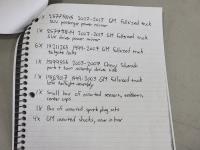 1x 25779845 2007-2013 GM fullsized truck
SUV passenger power mirror
1x 25779844 2007-2013 GM fullsized truck
SUV driver power mirror
6x 19211263 1999-2007 GM fullsized truck
tailgate locks
1x 2007-2013 Chevy Silverado
park + turn assembly driver side
1x 1999-2003 GM fullsized truck
tailgate assembly
1x Small box of assorted sensors, emblems,
center caps
1x Box of assorted spark plug sets
4x GM assorted shocks, new in box